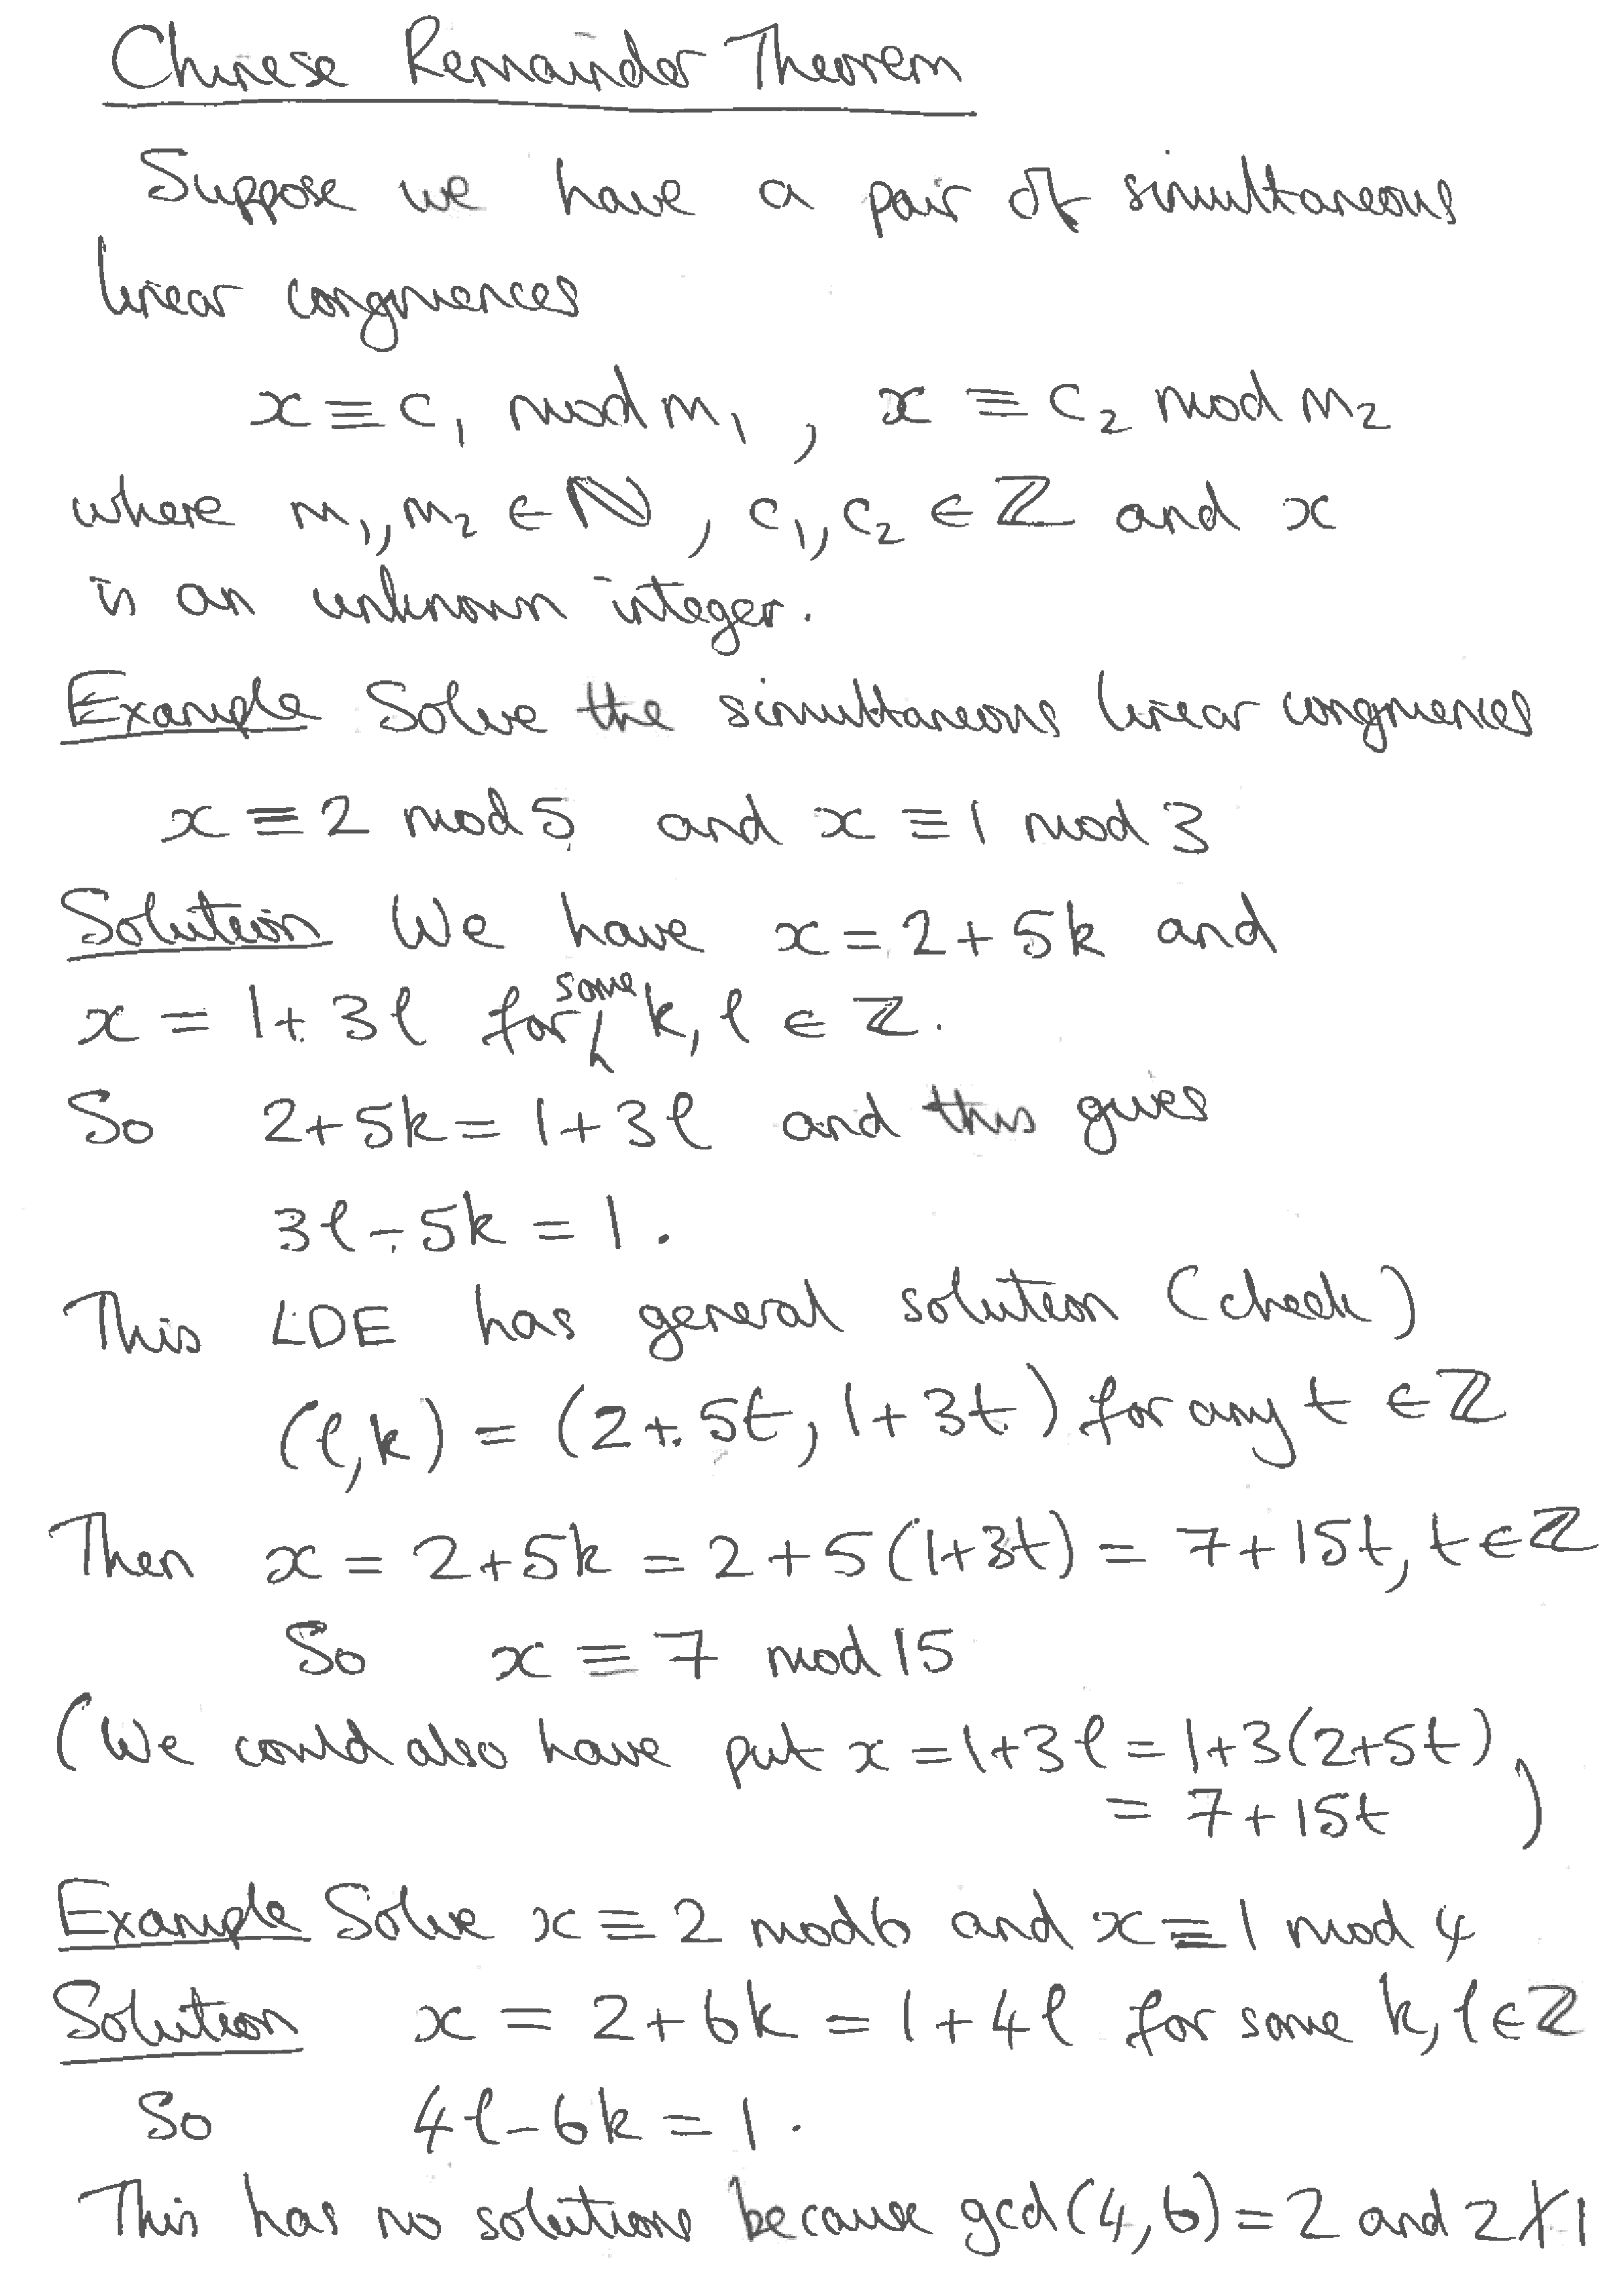 Chinese Remainder Theorem
Suppose we have a pair of simultaneous
linear congruences
x ≡ c₁ mod m₁ , x ≡ c₂ mod m₂
where m₁, m₂ ∈ ℕ , c₁, c₂ ∈ ℤ and x
is an unknown integer.
Example Solve the simultaneous linear congruences
x ≡ 2 mod 5 and x ≡ 1 mod 3
Solution We have x = 2 + 5k and
x = 1 + 3ℓ for some k, ℓ ∈ ℤ.
So 2 + 5k = 1 + 3ℓ and this gives
3ℓ - 5k = 1.
This LDE has general solution (check)
(ℓ, k) = (2 + 5t, 1 + 3t) for any t ∈ ℤ
Then x = 2 + 5k = 2 + 5(1+3t) = 7 + 15t, t ∈ ℤ
So x ≡ 7 mod 15
(We could also have put x = 1+3ℓ = 1+3(2+5t)
= 7 + 15t )
Example Solve x ≡ 2 mod 6 and x ≡ 1 mod 4
Solution x = 2 + 6k = 1 + 4ℓ for some k, ℓ ∈ ℤ
So 4ℓ - 6k = 1.
This has no solutions because gcd(4, 6) = 2 and 2 ∤ 1